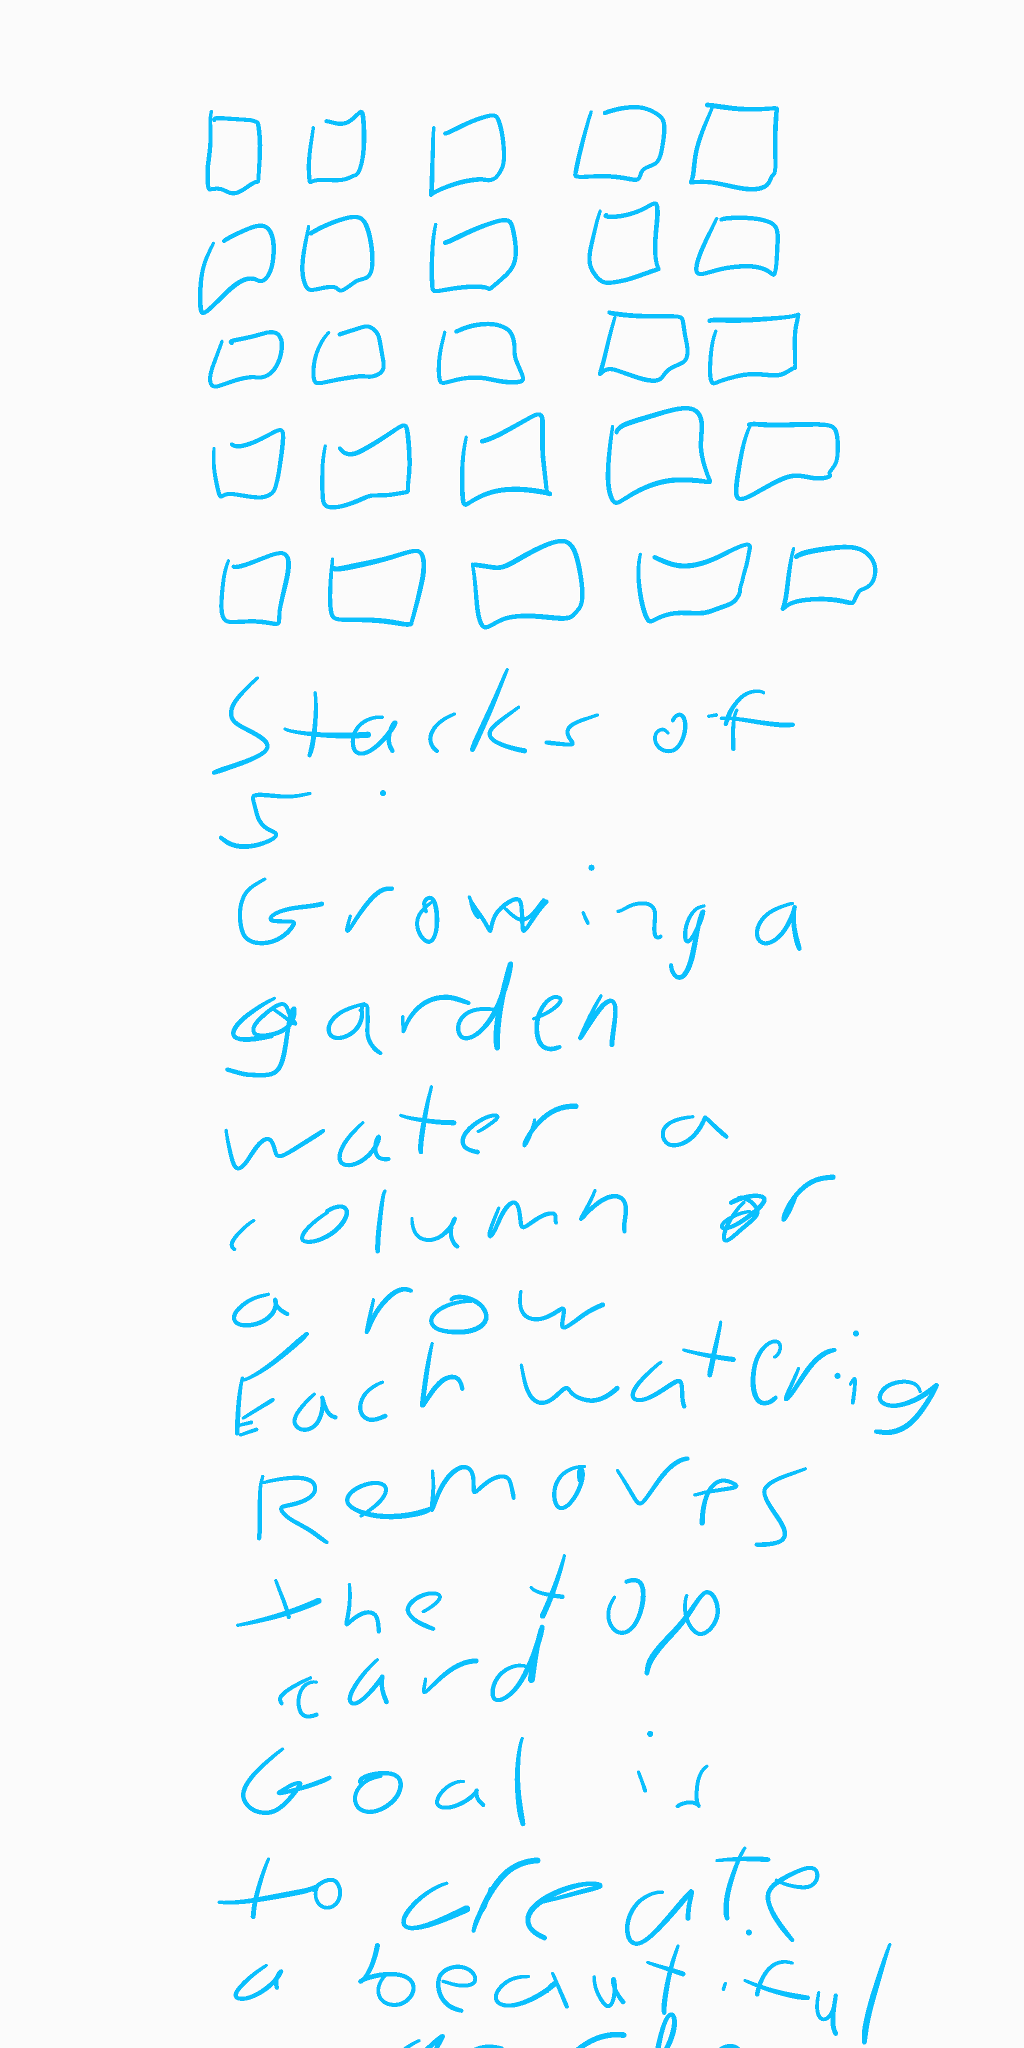 Stacks of
5
Growing a
garden
water a
column or
a row
Each waterig
Removes
the top
card
Goal is
to create
a beautiful